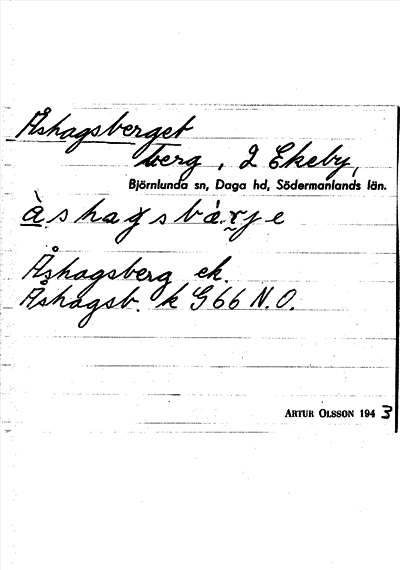 Åshagsberget
berg, 2 Ekeby,
Björnlunda sn, Daga hd, Södermanlands län.
Åshagsberg ek.
Åshagsb. k G66 N.O.
ARTUR OLSSON 1943